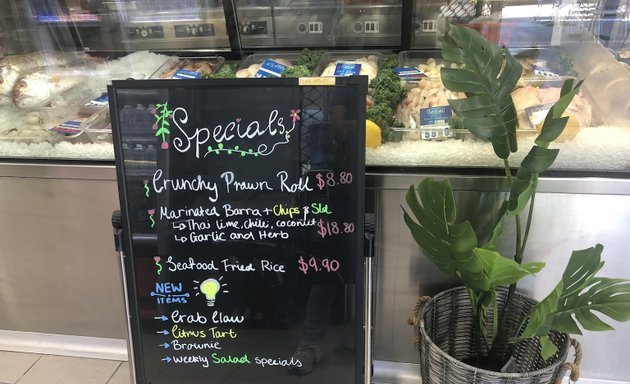 Specials
Crunchy Prawn Roll $8.80
Marinated Barra + Chips & Sld
↳ Thai lime, chili, coconut $18.80
↳ Garlic and Herb
Seafood Fried Rice $9.90
NEW
ITEMS
→ Crab Claw
→ Citrus Tart
→ Brownie
→ Weekly Salad specials